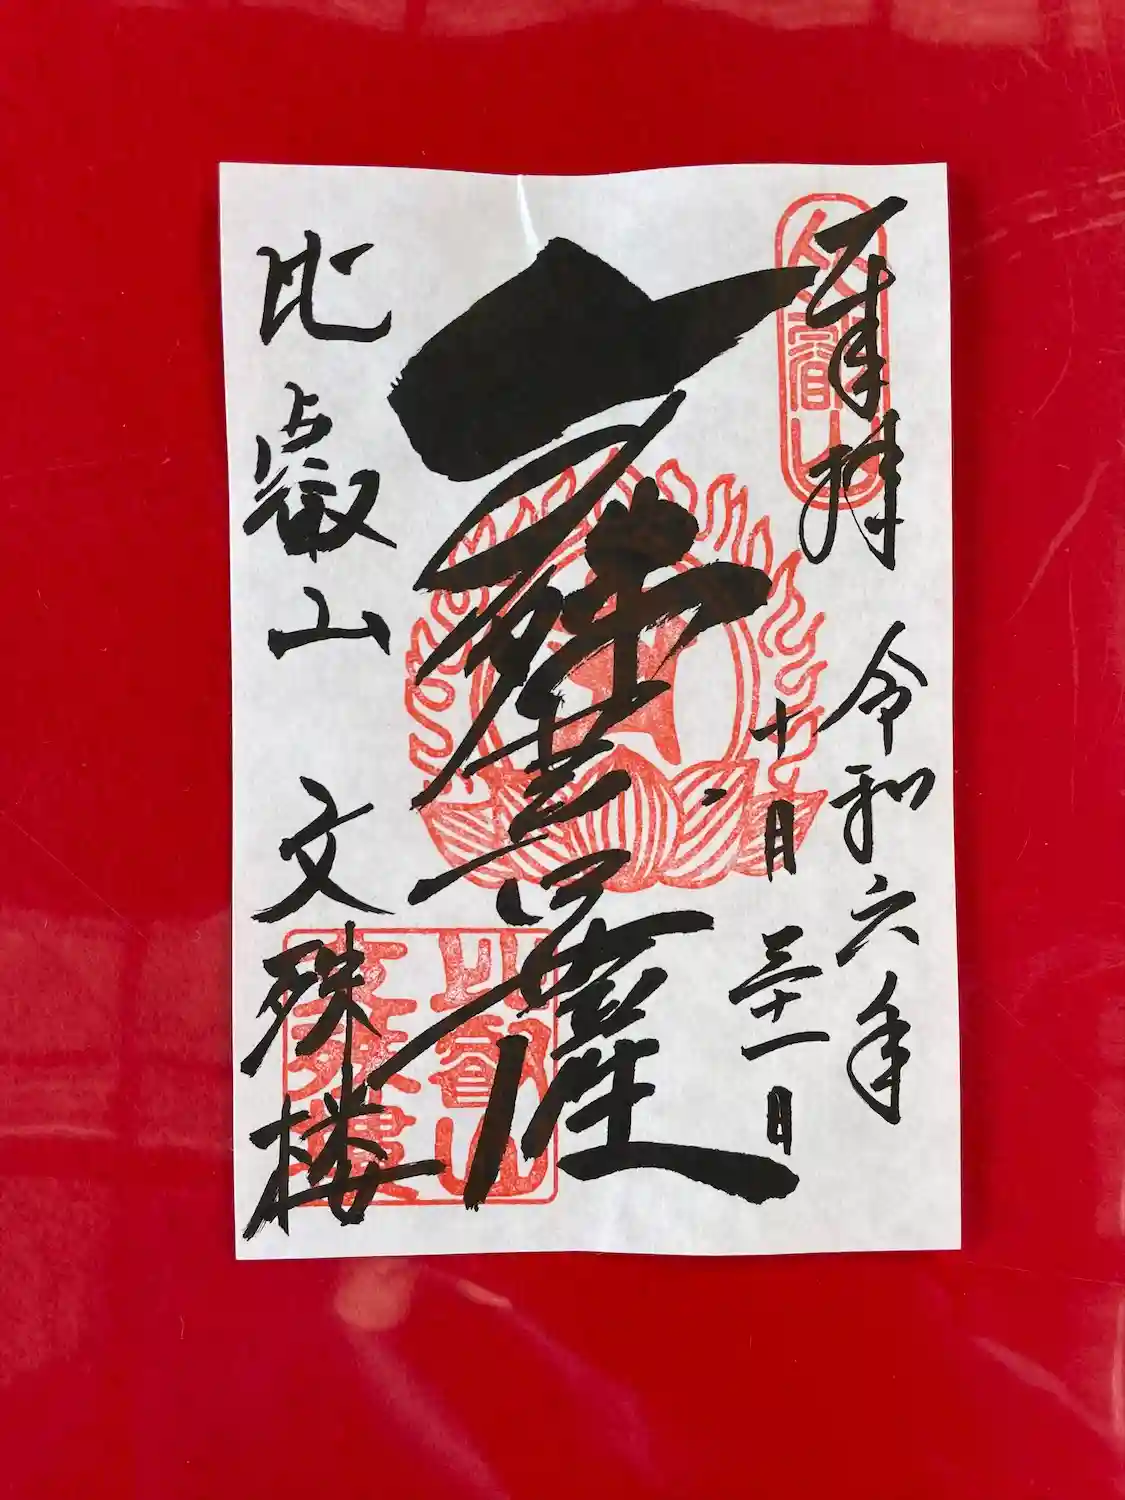 奉拝
令和六年
月三十一日
文殊菩薩
比叡山
文殊楼
比叡山
比叡山
文殊楼